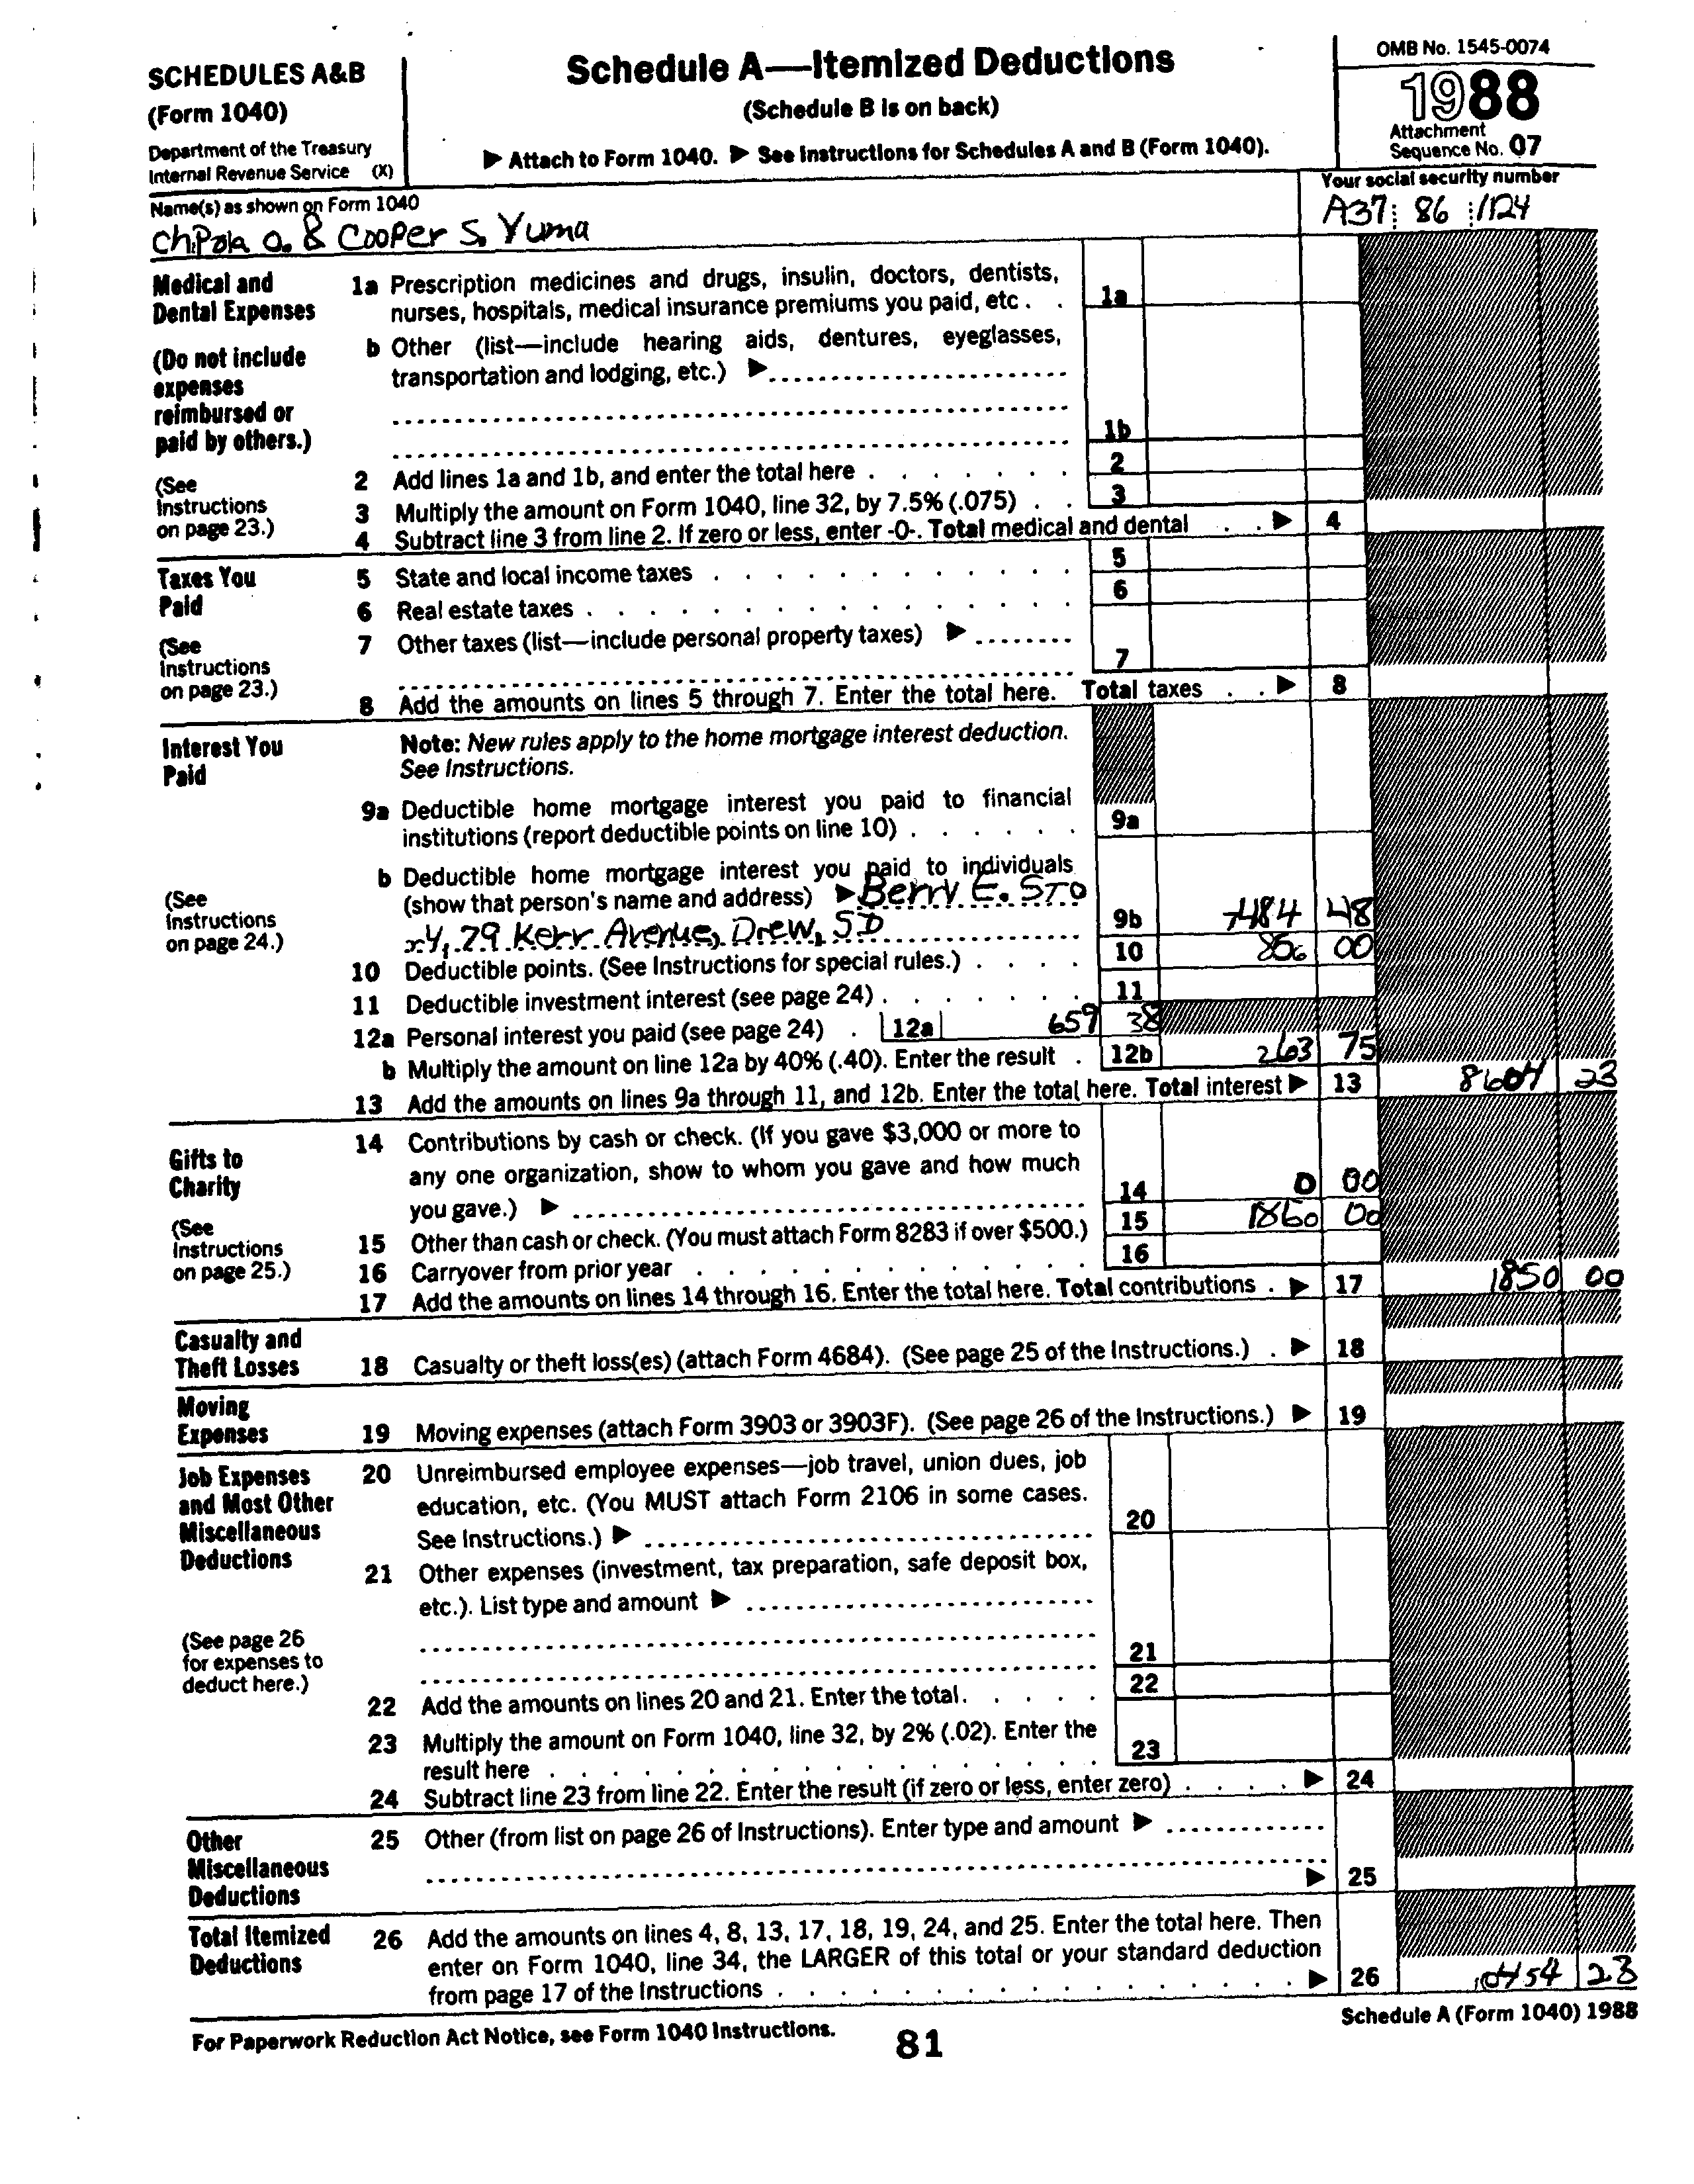 SCHEDULES A&B
(Form 1040)
Department of the Treasury
Internal Revenue Service (X)
Schedule A—Itemized Deductions
(Schedule B is on back)
▶ Attach to Form 1040. ▶ See Instructions for Schedules A and B (Form 1040).
OMB No. 1545-0074
1988
Attachment
Sequence No. 07
Name(s) as shown on Form 1040
Chipola O. & Cooper S. Yuma
Your social security number
A37 86 1124
Medical and
Dental Expenses
(Do not include
expenses
reimbursed or
paid by others.)
(See
Instructions
on page 23.)
1a Prescription medicines and drugs, insulin, doctors, dentists,
nurses, hospitals, medical insurance premiums you paid, etc . . 1a
b Other (list—include hearing aids, dentures, eyeglasses,
transportation and lodging, etc.) ▶
1b
2 Add lines 1a and 1b, and enter the total here . . . . . . . 2
3 Multiply the amount on Form 1040, line 32, by 7.5% (.075) . . 3
4 Subtract line 3 from line 2. If zero or less, enter -0-. Total medical and dental . . ▶ 4
Taxes You
Paid
(See
Instructions
on page 23.)
5 State and local income taxes . . . . . . . . . . . . 5
6 Real estate taxes . . . . . . . . . . . . . . . 6
7 Other taxes (list—include personal property taxes) ▶
7
8 Add the amounts on lines 5 through 7. Enter the total here. Total taxes . . ▶ 8
Interest You
Paid
(See
Instructions
on page 24.)
Note: New rules apply to the home mortgage interest deduction.
See Instructions.
9a Deductible home mortgage interest you paid to financial
institutions (report deductible points on line 10) . . . . . . 9a
b Deductible home mortgage interest you paid to individuals
(show that person's name and address) ▶ Berry E. STO
xy, 79 Kerr Avenue, Drew, SD 9b 7484 48
10 Deductible points. (See Instructions for special rules.) . . . . 10 856 00
11 Deductible investment interest (see page 24) . . . . . . . 11
12a Personal interest you paid (see page 24) . 12a 659 38
b Multiply the amount on line 12a by 40% (.40). Enter the result . 12b 263 75
13 Add the amounts on lines 9a through 11, and 12b. Enter the total here. Total interest ▶ 13 8604 23
Gifts to
Charity
(See
Instructions
on page 25.)
14 Contributions by cash or check. (If you gave $3,000 or more to
any one organization, show to whom you gave and how much
you gave.) ▶ 14 0 00
15 Other than cash or check. (You must attach Form 8283 if over $500.) 15 1850 00
16 Carryover from prior year . . . . . . . . . . . . . 16
17 Add the amounts on lines 14 through 16. Enter the total here. Total contributions . ▶ 17 1850 00
Casualty and
Theft Losses
18 Casualty or theft loss(es) (attach Form 4684). (See page 25 of the Instructions.) . ▶ 18
Moving
Expenses
19 Moving expenses (attach Form 3903 or 3903F). (See page 26 of the Instructions.) ▶ 19
Job Expenses
and Most Other
Miscellaneous
Deductions
(See page 26
for expenses to
deduct here.)
20 Unreimbursed employee expenses—job travel, union dues, job
education, etc. (You MUST attach Form 2106 in some cases.
See Instructions.) ▶ 20
21 Other expenses (investment, tax preparation, safe deposit box,
etc.). List type and amount ▶
21
22 Add the amounts on lines 20 and 21. Enter the total. . . . . . 22
23 Multiply the amount on Form 1040, line 32, by 2% (.02). Enter the
result here . . . . . . . . . . . . . . . . . 23
24 Subtract line 23 from line 22. Enter the result (if zero or less, enter zero) . . . . ▶ 24
Other
Miscellaneous
Deductions
25 Other (from list on page 26 of Instructions). Enter type and amount ▶
▶ 25
Total Itemized
Deductions
26 Add the amounts on lines 4, 8, 13, 17, 18, 19, 24, and 25. Enter the total here. Then
enter on Form 1040, line 34, the LARGER of this total or your standard deduction
from page 17 of the Instructions . . . . . . . . . . . . . . . . ▶ 26 10454 23
For Paperwork Reduction Act Notice, see Form 1040 Instructions.
81
Schedule A (Form 1040) 1988